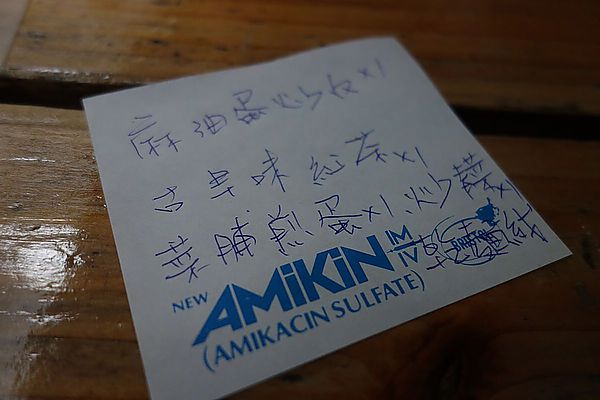 麻油蛋炒飯x1
古早味紅茶x1
菜脯煎蛋x1、炒
NEW AMiKiN IM IV
(AMIKACIN SULFATE)